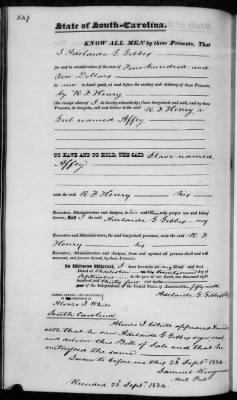 547
State of South-Carolina.
KNOW ALL MEN by these Presents, That
I Adelaide G. Gibbes
for and in consideration of the sum of Four hundred and
Ten Dollars
to me in hand paid, at and before the sealing and delivery of these Presents,
by W F Henry
(the receipt whereof I do hereby acknowledge) have bargained and sold, and by these
Presents, do bargain, sell and deliver to the said W F Henry a
Girl named Affey
TO HAVE AND TO HOLD, THE SAID Slave named
Affey
unto the said W F Henry his
Executors, Administrators and Assigns, to his and their only proper use and behoof
forever. And I the said Adelaide G Gibbes my
Executors and Administrators, the said bargained premises, unto the said W. F
Henry his
Executors, Administrators and Assigns, from and against all persons shall and will
warrant, and forever defend, by these Presents.
IN WITNESS WHEREOF, I have hereunto set my Hand and Seal
Dated at Charleston on the Twenty second day of
September in the year of our Lord, one thousand eight
hundred and thirty four and in the
year of the Independence of the United States of America, the fifty ninth
Adelaide G Gibbes
SIGNED, SEALED, AND DELIVERED
IN THE PRESENCE OF
Alonzo J. White
South Carolina
Alonzo J. White appeared &
saith that he saw Adelaide G. Gibbes sign seal
and deliver this Bill of Sale and that he
witnessed the same
Sworn to before me this 23 Septr. 1834
Samuel
Not Pub
Recorded 23d Septr. 1834.